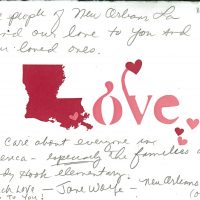 e people of New Orleans La
nd our love to you and
ur loved ones.
ove
Care about everyone in
erica - especially the families o
dy Hook elementary.
ch Love - Jane Wolfe - New Orleans
To You!